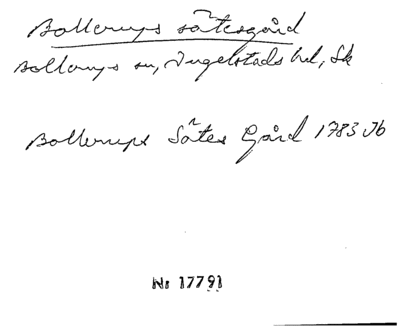 Bollerups sätesgård
Bollerups sn, Ingelstads hd, Sk
Bollerups Sätes Gård 1783 Jb
Nr 17791